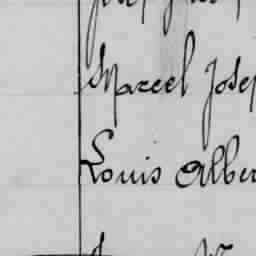 Marcel Josep
Louis Alber